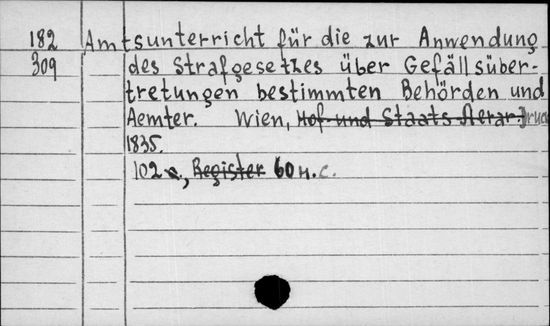 182 Amtsunterricht für die zur Anwendung
309 des Strafgesetzes über Gefällsüber-
tretungen bestimmten Behörden und
Aemter. Wien, Hof- und Staats Aerar. Druck
1835.
102 s., Register 60 u. c.